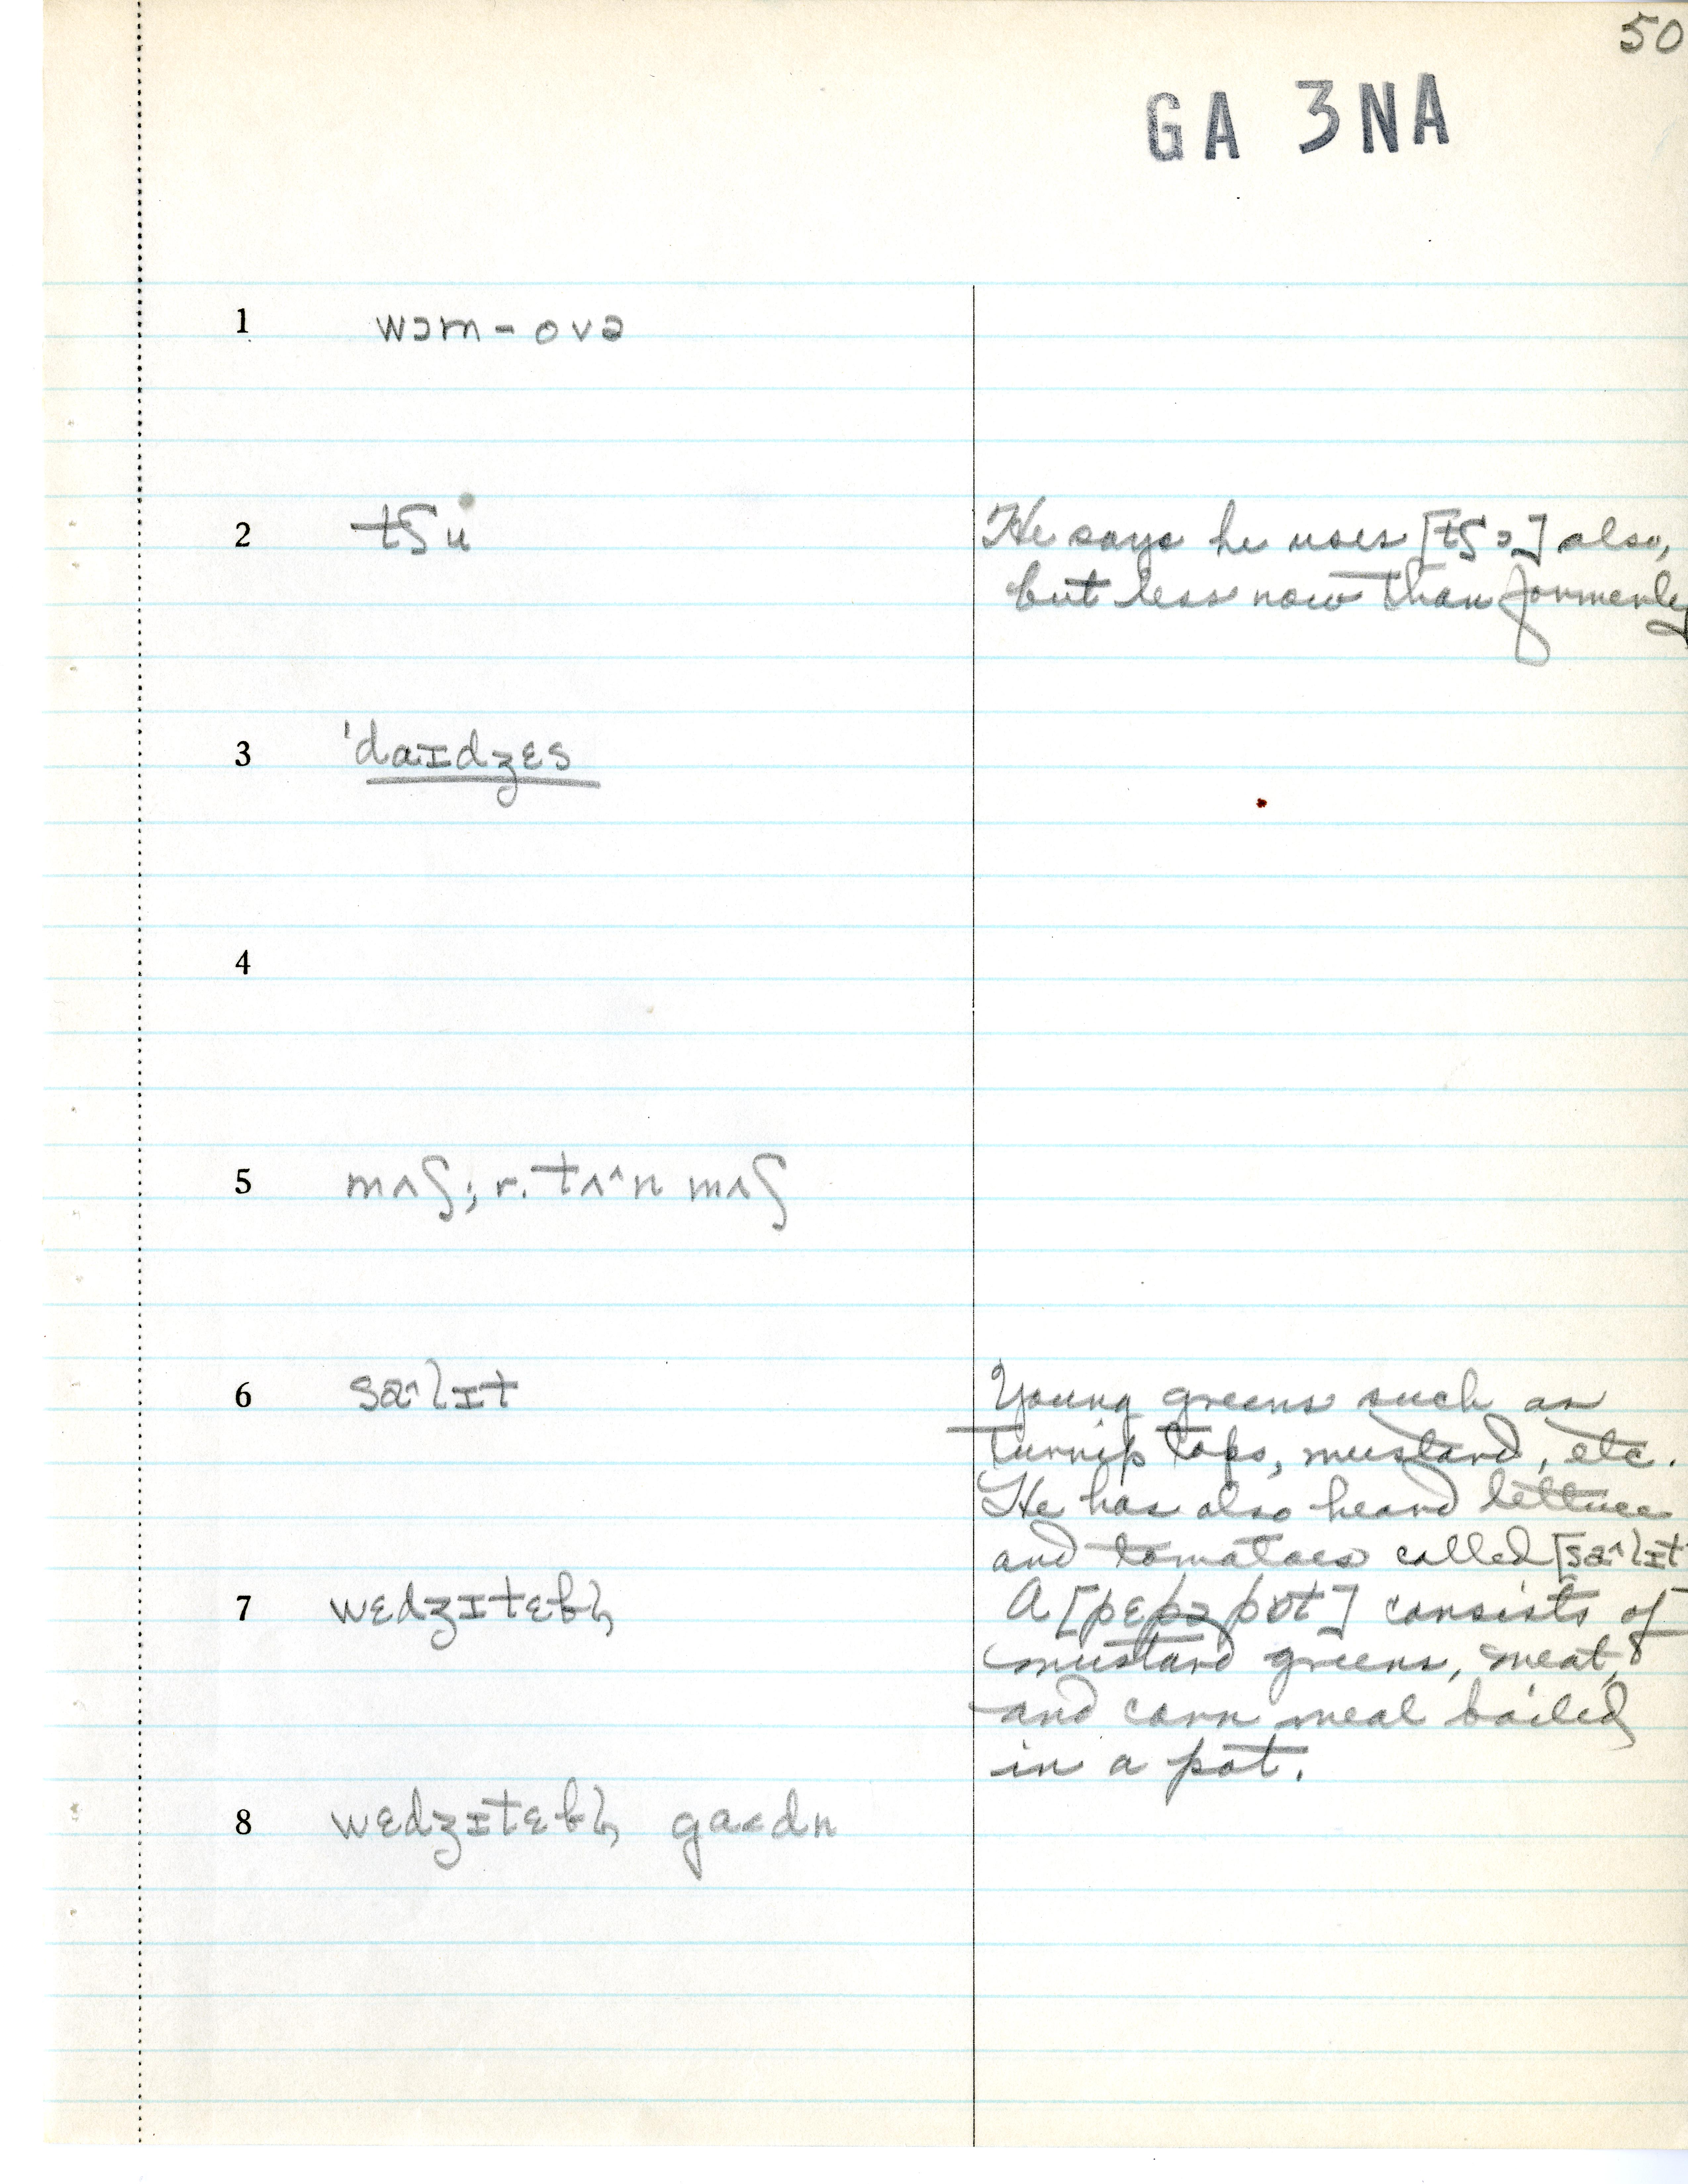 50
GA 3NA
1 wɔm-ovə
2 tʃu
He says he uses [tʃɔ] also,
but less now than formerly
3 ˈdaɪdʒɛs
4
5 mʌʃ; r. tʌ^n mʌʃ
6 sæ^lɪt
Young greens such as
turnip tops, mustard, etc.
He has also heard lettuce
and tomatoes called [sæ^lɪt
7 wɛdʒɪtɛbl̩
A [pɛpə pɒt] consists of
mustard greens, meat,
and corn meal boiled
in a pot.
8 wɛdʒɪtɛbl̩ ga<dn